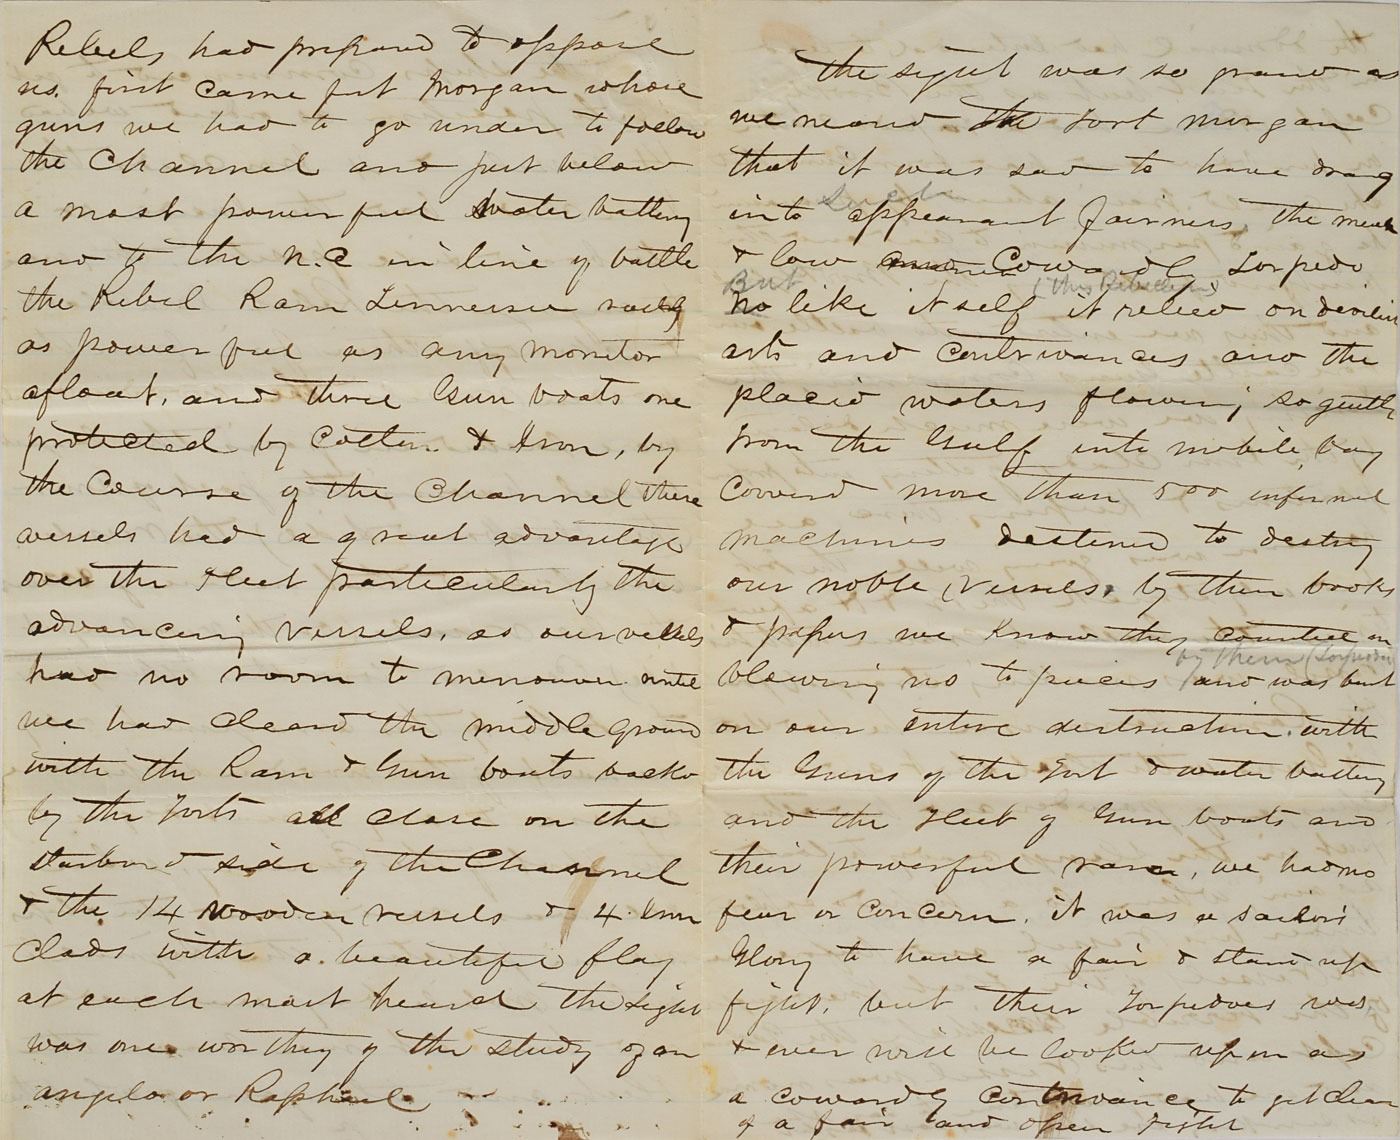 Rebels had prepared to oppose
us. first came fort Morgan whose
guns we had to go under to follow
the Channel and just below
a most powerful water battery
and to the N.E in line of battle
the Rebel Ram Tennessee
as powerful as any monitor
afloat, and three Gun boats one
protected by Cotton & Iron, by
the Course of the Channel these
vessels had a great advantage
over the Fleet particularly the
advancing vessels, as our vessels
had no room to menouver until
we had cleard the middle ground
with the Ram & Gun boats backd
by the Forts all close on the
starbord side of the Channel
& the 14 wooden vessels & 4 Iron
Clads with a beautiful flag
at each mast heard the sight
was one worthy of the study of an
angelo or Raphael
the sight was so grand as
we neard the Fort morgan
that it was sad to have drag
into such appearant fairness, the mean
& low Cowardly Torpedo
But
(this Rebellion)
no like itself it relied on
arts and contrivances and the
placid waters flowing so gently
from the Gulf into mobile bay
Coverd more than 500 infernal
machines destened to destroy
our noble vessels. by their books
& papers we know they counted on
by them (Torpedoes
blowing us to pieces and was bent
on our entire destruction. with
the Guns of the Fort & water battery
and the Fleet of Gun boats and
their powerful ram, we had no
fear or concern. it was a sailors
Glory to have a fair & stand up
fight. but their Torpedoes was
& ever will be looked upon as
a cowardly contrivance to get clear
of a fair and open Fight